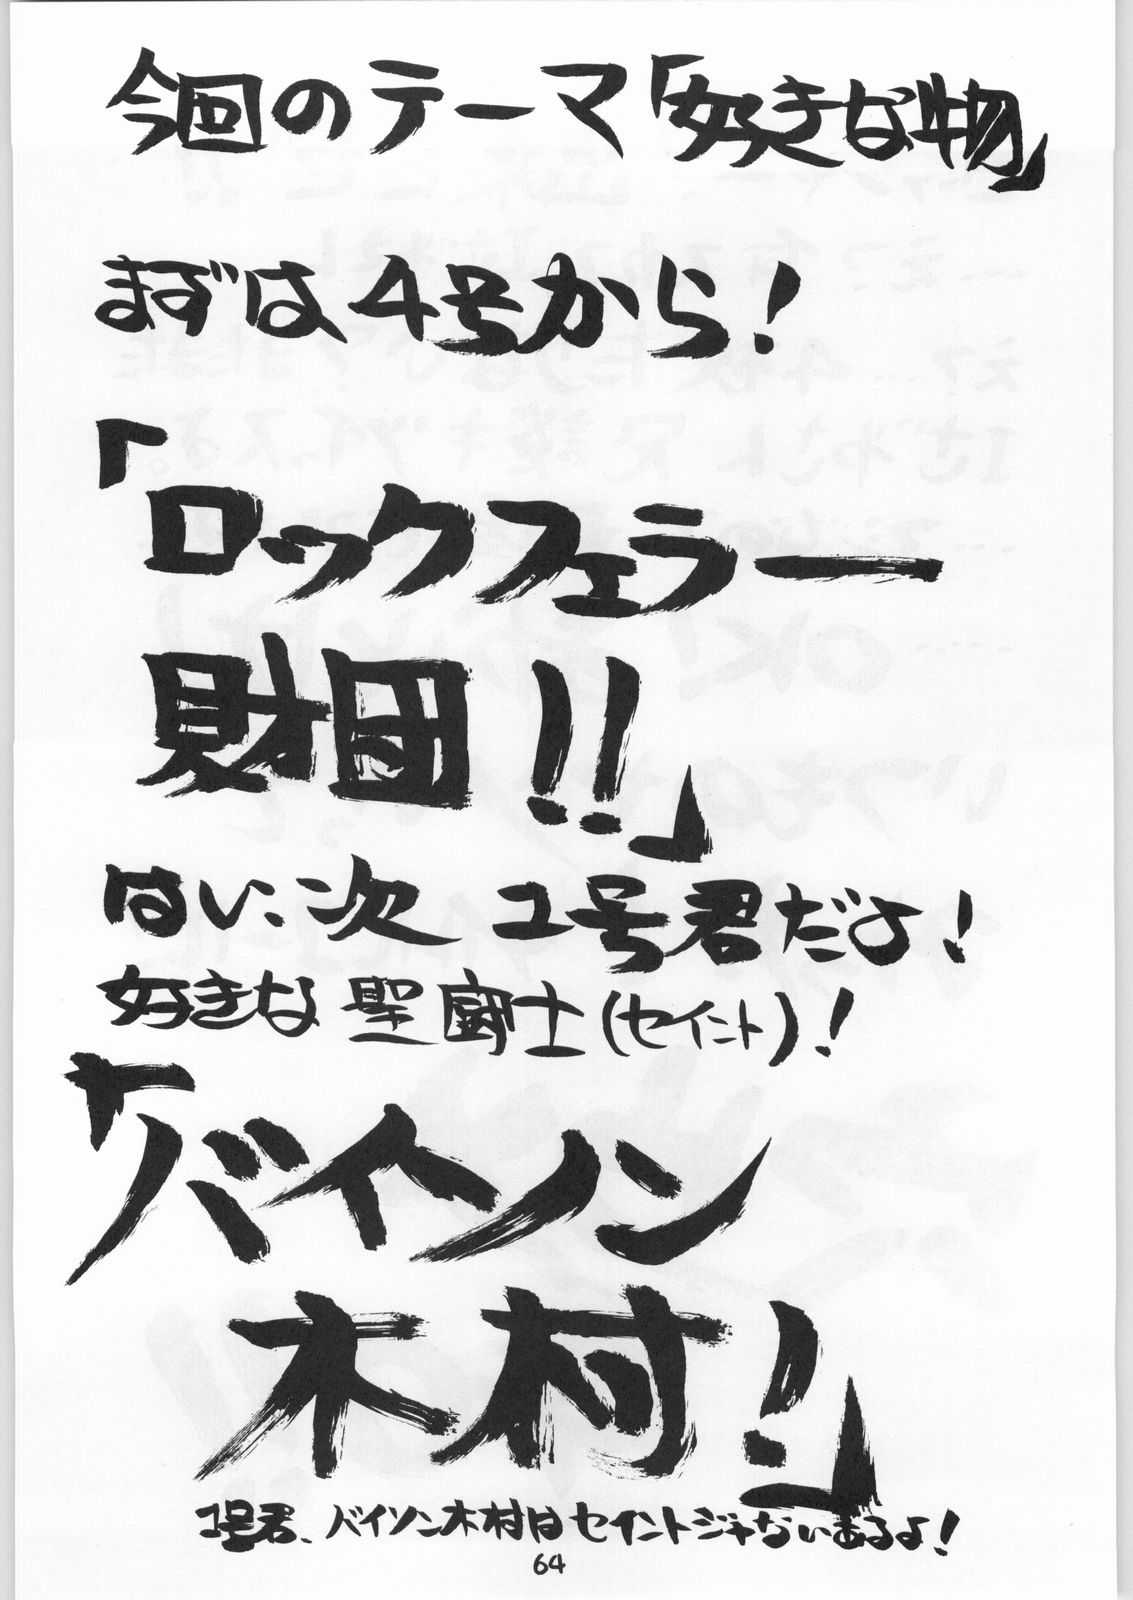 今回のテーマ「好きな物」
まずは4号から!
「ロックフェラー
財団!!」
はい、次 1号君だよ!
好きな 聖闘士(セイント)!
「バイソン
木村!」
1号君、バイソン木村はセイントジャないあるよ!
64